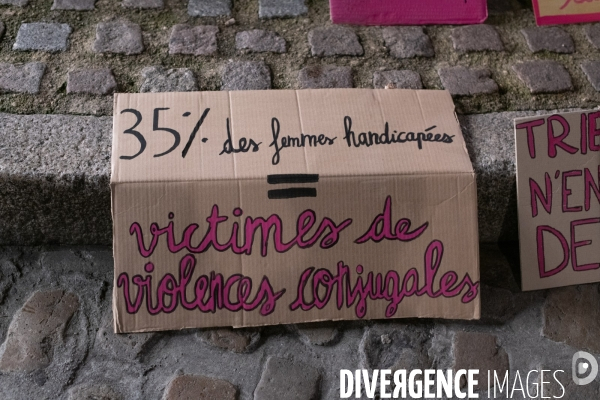 35% des femmes handicapées
=
victimes de
violences conjugales
TRIE
N'EN
DE
DIVERGENCE IMAGES